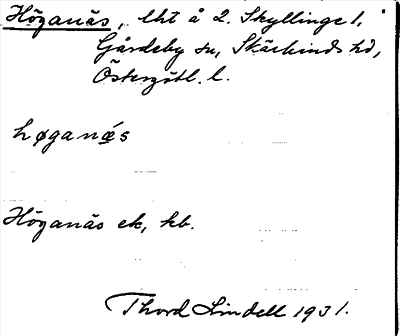 Höganäs, lht å 2. Skyllinge 1,
Gårdeby sn, Skärkinds hd,
Östergötl. l.
høganǽs
Höganäs ek, kb.
Thord Lindell 1931.